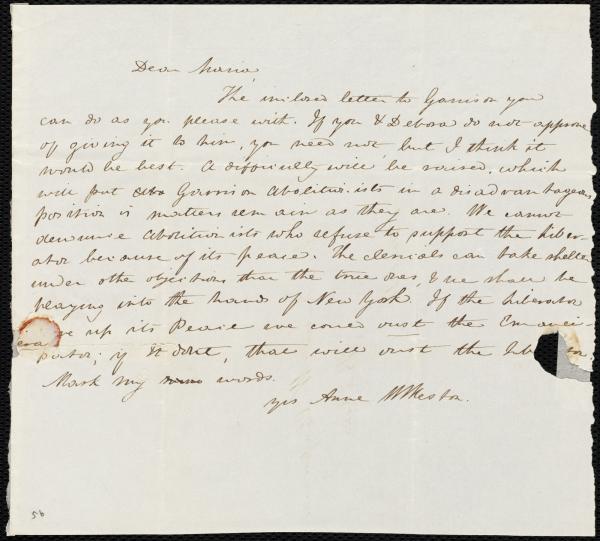 Dear Maria,
The inclosed letter to Garrison you
can do as you please with. If you & Debora do not approve
of giving it to him, you need not, but I think it
would be best. A difficulty will be raised, which
will put Garrison abolitionists in a disadvantageous
position if matters remain as they are. We cannot
denounce abolitionists who refuse to support the Liber-
ator because of its peace. The clericals can take shelter
under other objections than the true ones, & we shall be
playing into the hands of New York. If the Liberator
up its Peace we could oust the Emanci-
pator; if it dont, that will oust the
Mark my words.
yrs Anne W Weston.
56